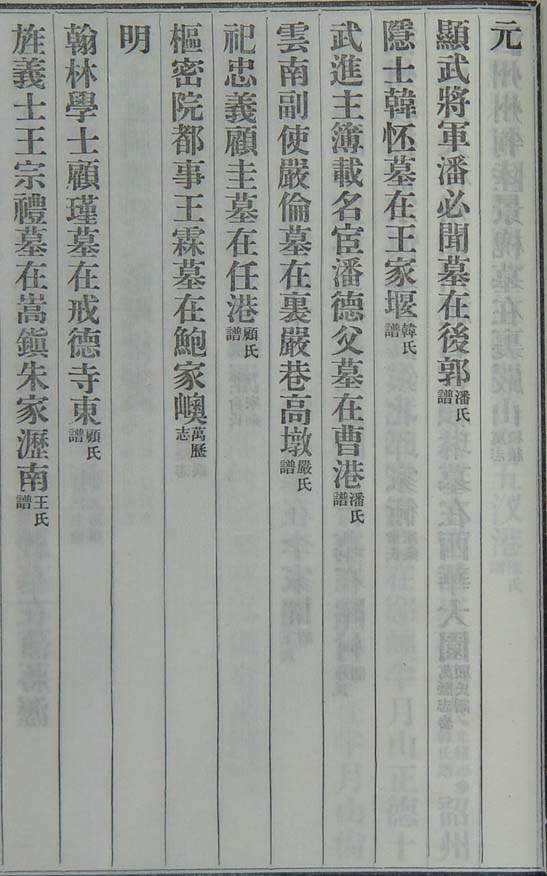 元
顯武將軍潘必聞墓在後郭潘氏譜
隱士韓怌墓在王家堰韓氏譜
武進主簿載名宦潘德父墓在曹港潘氏譜
雲南副使嚴倫墓在裏嚴巷高墩嚴氏譜
祀忠義顧主墓在任港顧氏譜
樞密院都事王霖墓在鮑家㠗萬歷志
明
翰林學士顧瑾墓在戒德寺東顧氏譜
旌義士王宗禮墓在嵩鎭朱家瀝南王氏譜